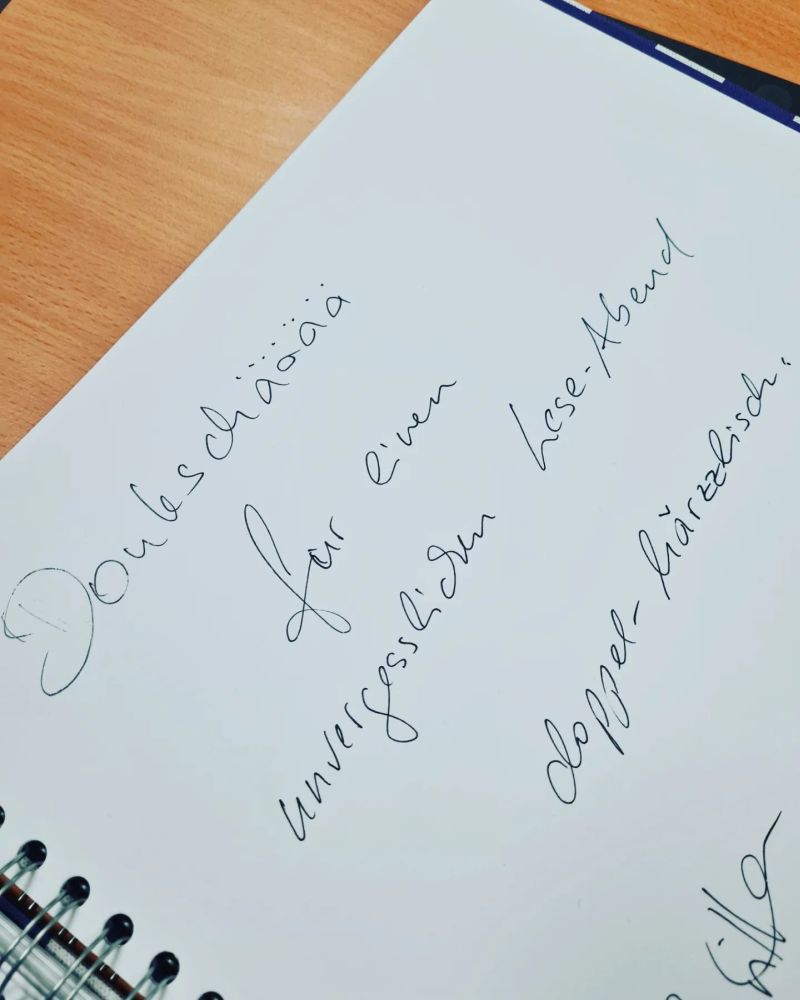 Donkschääää
für einen
unvergesslichen Lese-Abend
doppel-härzzlisch.